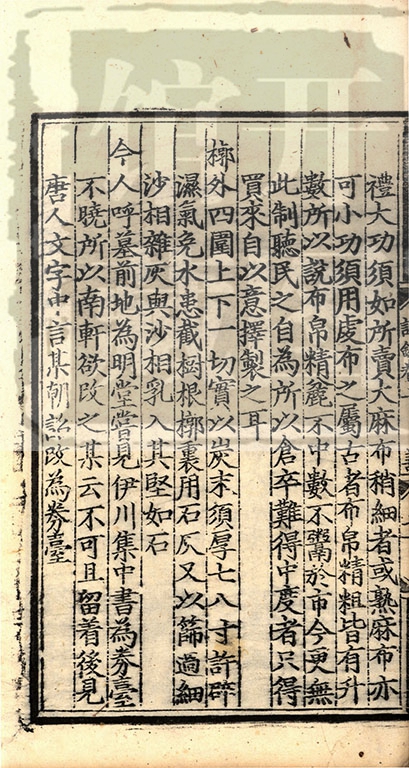 禮大功須如所賣大麻布稍細者或熟麻布亦
可小功須用虔布之屬古者布帛精粗皆有升
數所以說布帛精麄不中數不鬻於市今更無
此制聽民之自為所以倉卒難得中度者只得
買來自以意擇製之耳
槨外四圍上下一切實以炭末須厚七八寸許辟
濕氣免水患截樹根槨裏用石灰又以篩過細
沙相雜灰與沙相乳入其堅如石
今人呼墓前地為明堂嘗見伊川集中書為券臺
不曉所以南軒欲改之某云不可且留着後見
唐人文字中言某朝詔改為券臺